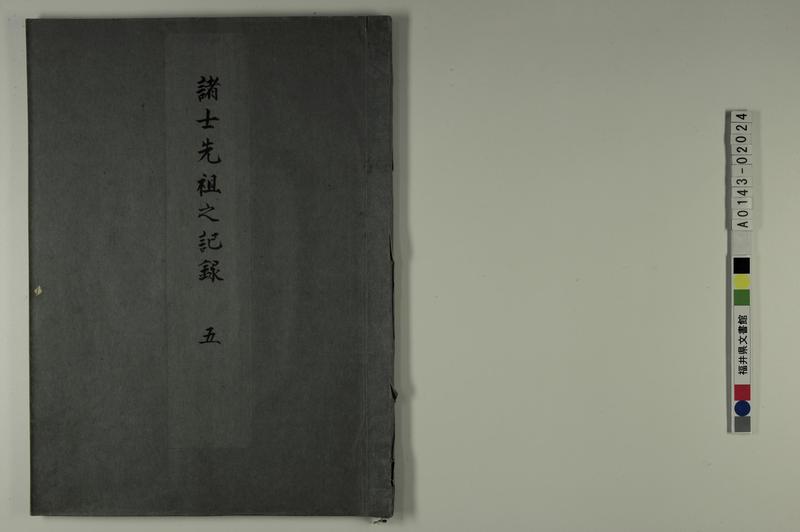 諸士先祖之記録 五
A0143-02024
福井県文書館